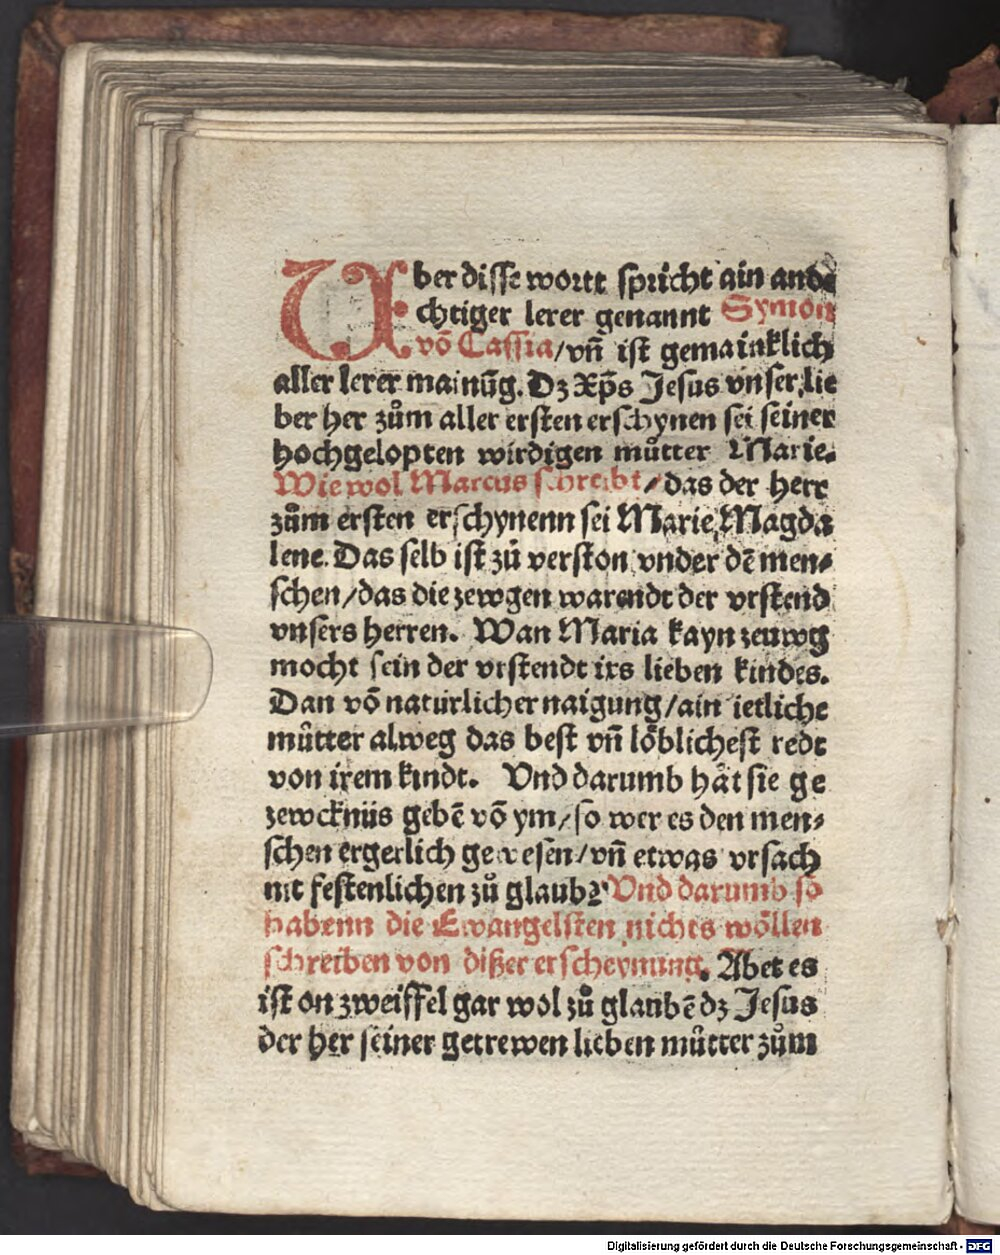 Uber disse wortt spricht ain ande
chtiger lerer genannt Symon
võ Cassia/vñ ist gemainklich
aller lerer mainũg. Dz Xp̃s Jesus vnser lie
ber her zům aller ersten erschynen sei seiner
hochgelopten wirdigen můtter Marie.
Wie wol Marcus schreibt/das der herr
zům ersten erschynenn sei Marie Magda
lene. Das selb ist zů verston vnder dẽ men⸗
schen/das die zewgen warendt der vrstend
vnsers herren. Wan Maria kayn zeuwg
mocht sein der vrstendt irs lieben kindes.
Dan võ naturlicher naigung/ain ietliche
můtter alweg das best vñ löblichest redt
von irem kindt. Vnd darumb hät sie ge
zewcknüs gebẽ võ ym/so wer es den men⸗
schen ergerlich gewesen/vñ etwas vrsach
nit festenlichen zů glaubꝫ Vnd darumb so
habenn die Ewangelsten nichts wöllen
schreiben von dißer erscheynung. Abet es
ist on zweiffel gar wol zů glaubẽ dz Jesus
der her seiner getrewen lieben můtter zům
Digitalisierung gefördert durch die Deutsche Forschungsgemeinschaft - DFG